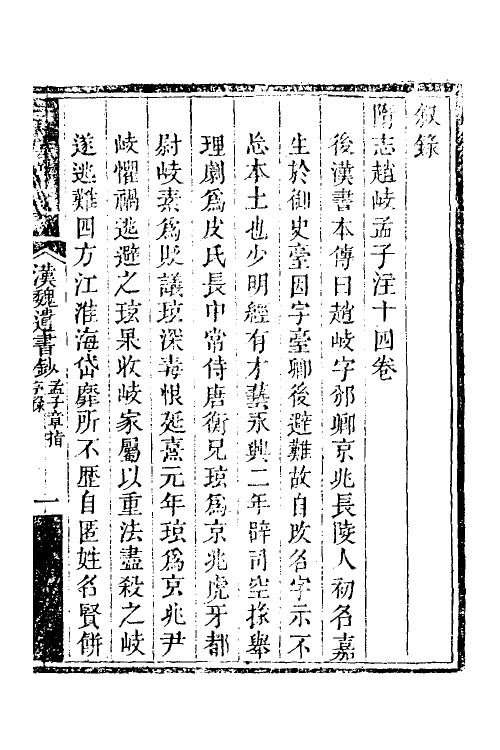 叙錄
隋志趙岐孟子注十四卷
後漢書本傳曰趙岐字邠卿京兆長陵人初名嘉
生於御史臺因字臺卿後避難故自改名字示不
忘本土也少明經有才藝永興二年辟司空掾舉
理劇爲皮氏長中常侍唐衡兄玹爲京兆虎牙都
尉岐素爲貶議玹深毒恨延熹元年玹爲京兆尹
岐懼禍逃避之玹果收岐家屬以重法盡殺之岐
遂逃難四方江淮海岱靡所不歷自匿姓名賣餅
漢魏遺書鈔
孟子章指
序錄
一